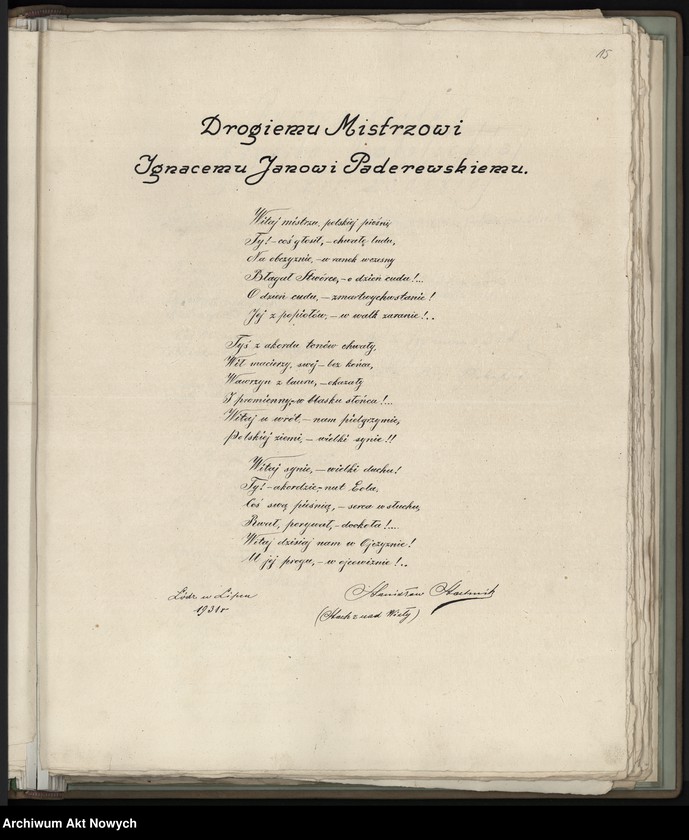 15
Drogiemu Mistrzowi
Ignacemu Janowi Paderewskiemu.
Witaj mistrzu, polskiej pieśni,
Ty! – coś głosił, – chwałę ludu,
Na obczyźnie, – w ranek wczesny
Błagał Stwórcę, – o dzień cudu!...
O dzień cudu, – zmartwychwstanie!
Jej z popiołów, – w walk zaranie!..
Tyś z akordu tonów chwały,
Wił macierzy, swéj – bez końca,
Wawrzyn z lauru, – okazały
I promienny, – w blasku słońca!...
Witaj u wrót, – nam pielgrzymie,
Polskiéj ziemi, – wielki synie!!
Witaj synie, – wielki duchu!
Ty! – akordzie, – nut Eola,
Coś swą pieśnią, – serca w słuchu,
Rwał, porywał, – dookoła!...
Witaj dzisiaj nam w Ojczyznie!
U jéj progu, – w ojcowiznie!..
Łódź w Lipcu
1931 r
Stanisław Stachnik
(Stach z nad Wisły)
Archiwum Akt Nowych